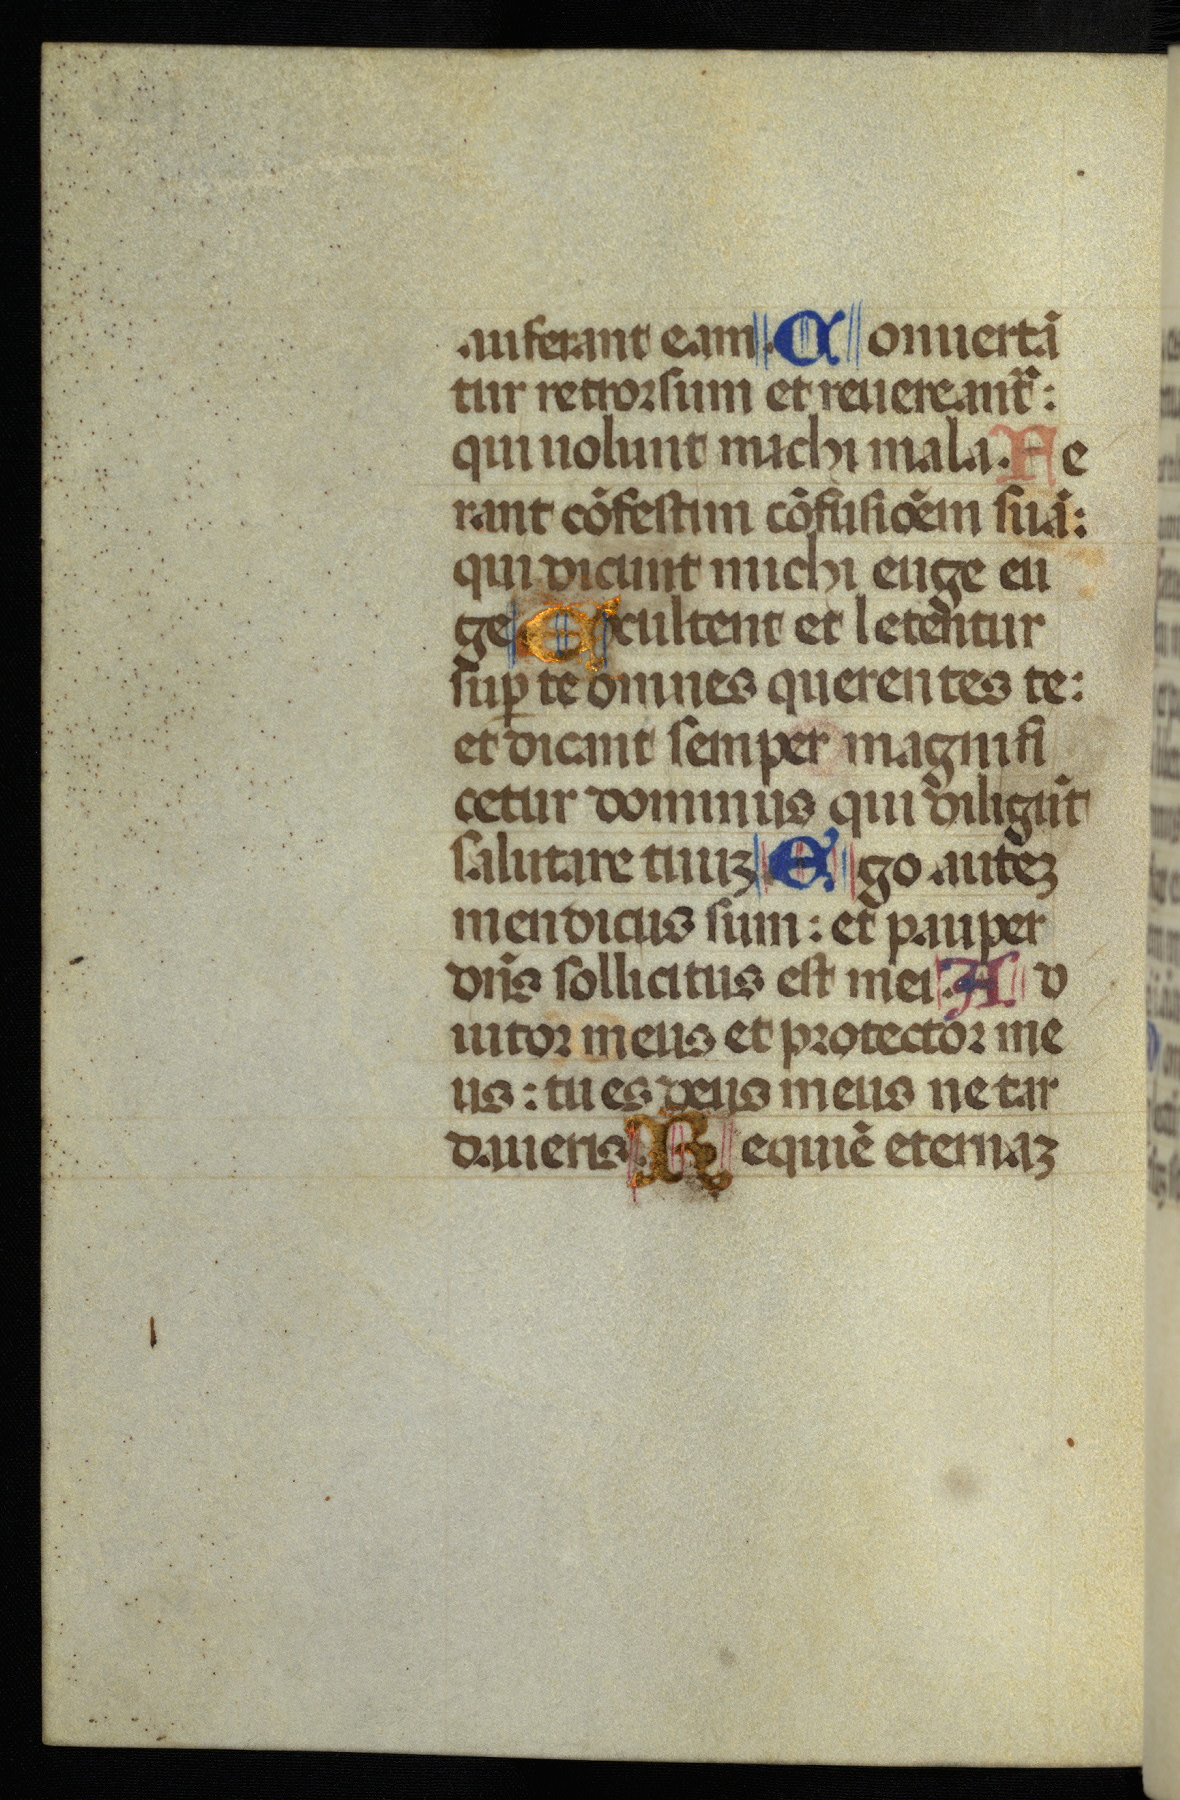 auferant eam. Conuertā
tur retrorsum et reuereant᷑:
qui uolunt michi mala. Fe
rant cōfestim cōfusiōem suā:
qui dicunt michi euge eu
ge. Exultent et letentur
suꝑ te omnes querentes te:
et dicant semper magnifi
cetur dominus qui diligūt
salutare tuuꝫ. Ego auteꝫ
mendicus sum: et pauper
dn̄s sollicitus est mei. Ad
iutor meus et protector me
us: tu es deus meus ne tar
daueris. Requiē eternaꝫ